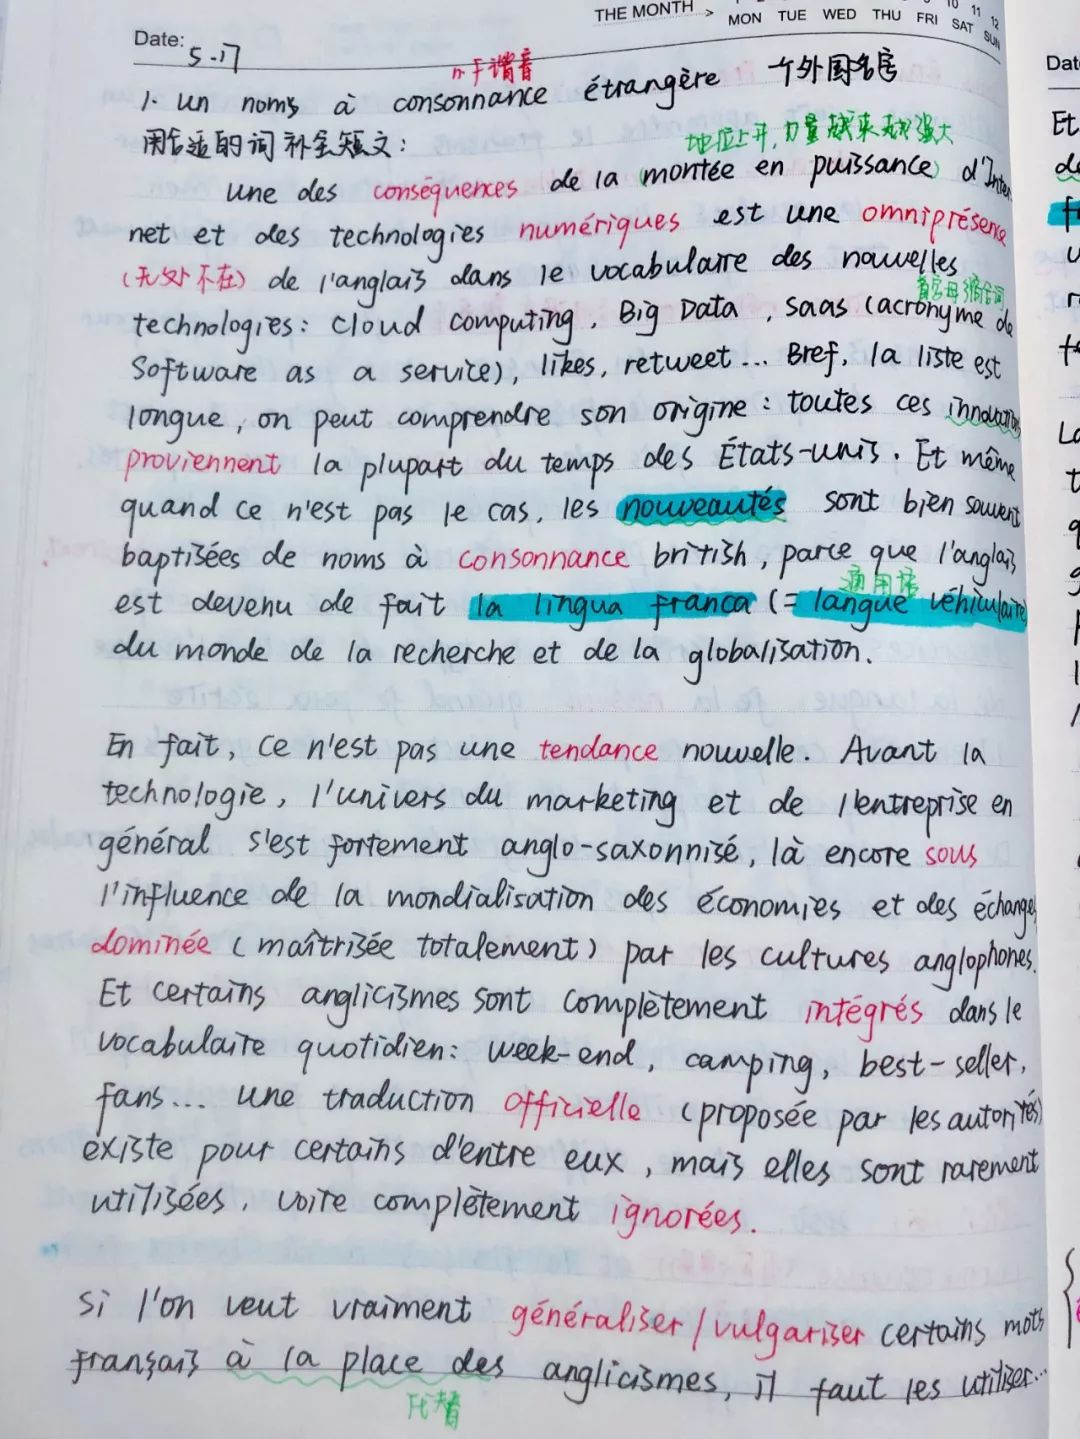 THE MONTH
10 11 12
MON TUE WED THU FRI SAT SUN
Date: 5-17
谐音
1. un noms à consonnance étrangère 个外国名字
用合适的词补全短文:
地位上升,力量越来越强大
une des conséquences de la (montée en puissance) d'Inter
net et des technologies numériques est une omniprésence
(无处不在) de l'anglais dans le vocabulaire des nouvelles
首字母缩合词
technologies: cloud computing, Big Data, saas (acronyme de
Software as a service), likes, retweet... Bref, la liste est
longue, on peut comprendre son origine: toutes ces innovations
proviennent la plupart du temps des États-unis. Et même
quand ce n'est pas le cas, les nouveautés sont bien souvent
baptisées de noms à consonnance british, parce que l'anglais
通用语
est devenu de fait la lingua franca (= langue véhiculaire)
du monde de la recherche et de la globalisation.
En fait, ce n'est pas une tendance nouvelle. Avant la
technologie, l'univers du marketing et de l'entreprise en
général s'est fortement anglo-saxonnisé, là encore sous
l'influence de la mondialisation des économies et des échanges
dominée (maîtrisée totalement) par les cultures anglophones.
Et certains anglicismes sont complètement intégrés dans le
vocabulaire quotidien: week-end, camping, best-seller,
fans... une traduction officielle (proposée par les autorités)
existe pour certains d'entre eux, mais elles sont rarement
utilisées, voire complètement ignorées.
Si l'on veut vraiment généraliser/vulgariser certains mots
français à la place des anglicismes, il faut les utiliser...
代替